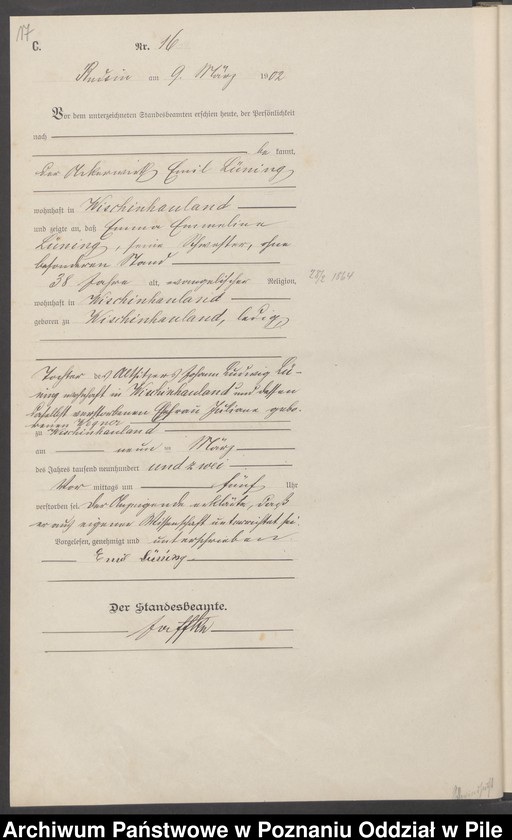 117
C.
Nr. 16
am 9. März 1902
Vor dem unterzeichneten Standesbeamten erschien heute, der Persönlichkeit
nach
be kannt,
der Ackerwirth Emil Lüning
wohnhaft in Wischinhauland
und zeigte an, daß Emma Emmeline
Lüning, seine Schwester, ohne
besonderen Stand
38 Jahre alt, evangelischer Religion,
28/2 1864
wohnhaft in Wischinhauland
geboren zu Wischinhauland, ledig
Tochter des Altsitzers Johann Ludwig Lü-
ning wohnhaft in Wischinhauland und dessen
daselbst verstorbenen Ehefrau Juliane gebo-
renen Wegner
zu Wischinhauland
am neun März
des Jahres tausend neunhundert und zwei
Vor mittags um fünf Uhr
verstorben sei. Der Anzeigende erklärte, daß
er aus eigener Wissenschaft unterrichtet sei.
Vorgelesen, genehmigt und unterschrieben
Emil Lüning
Der Standesbeamte.
Archiwum Państwowe w Poznaniu Oddział w Pile